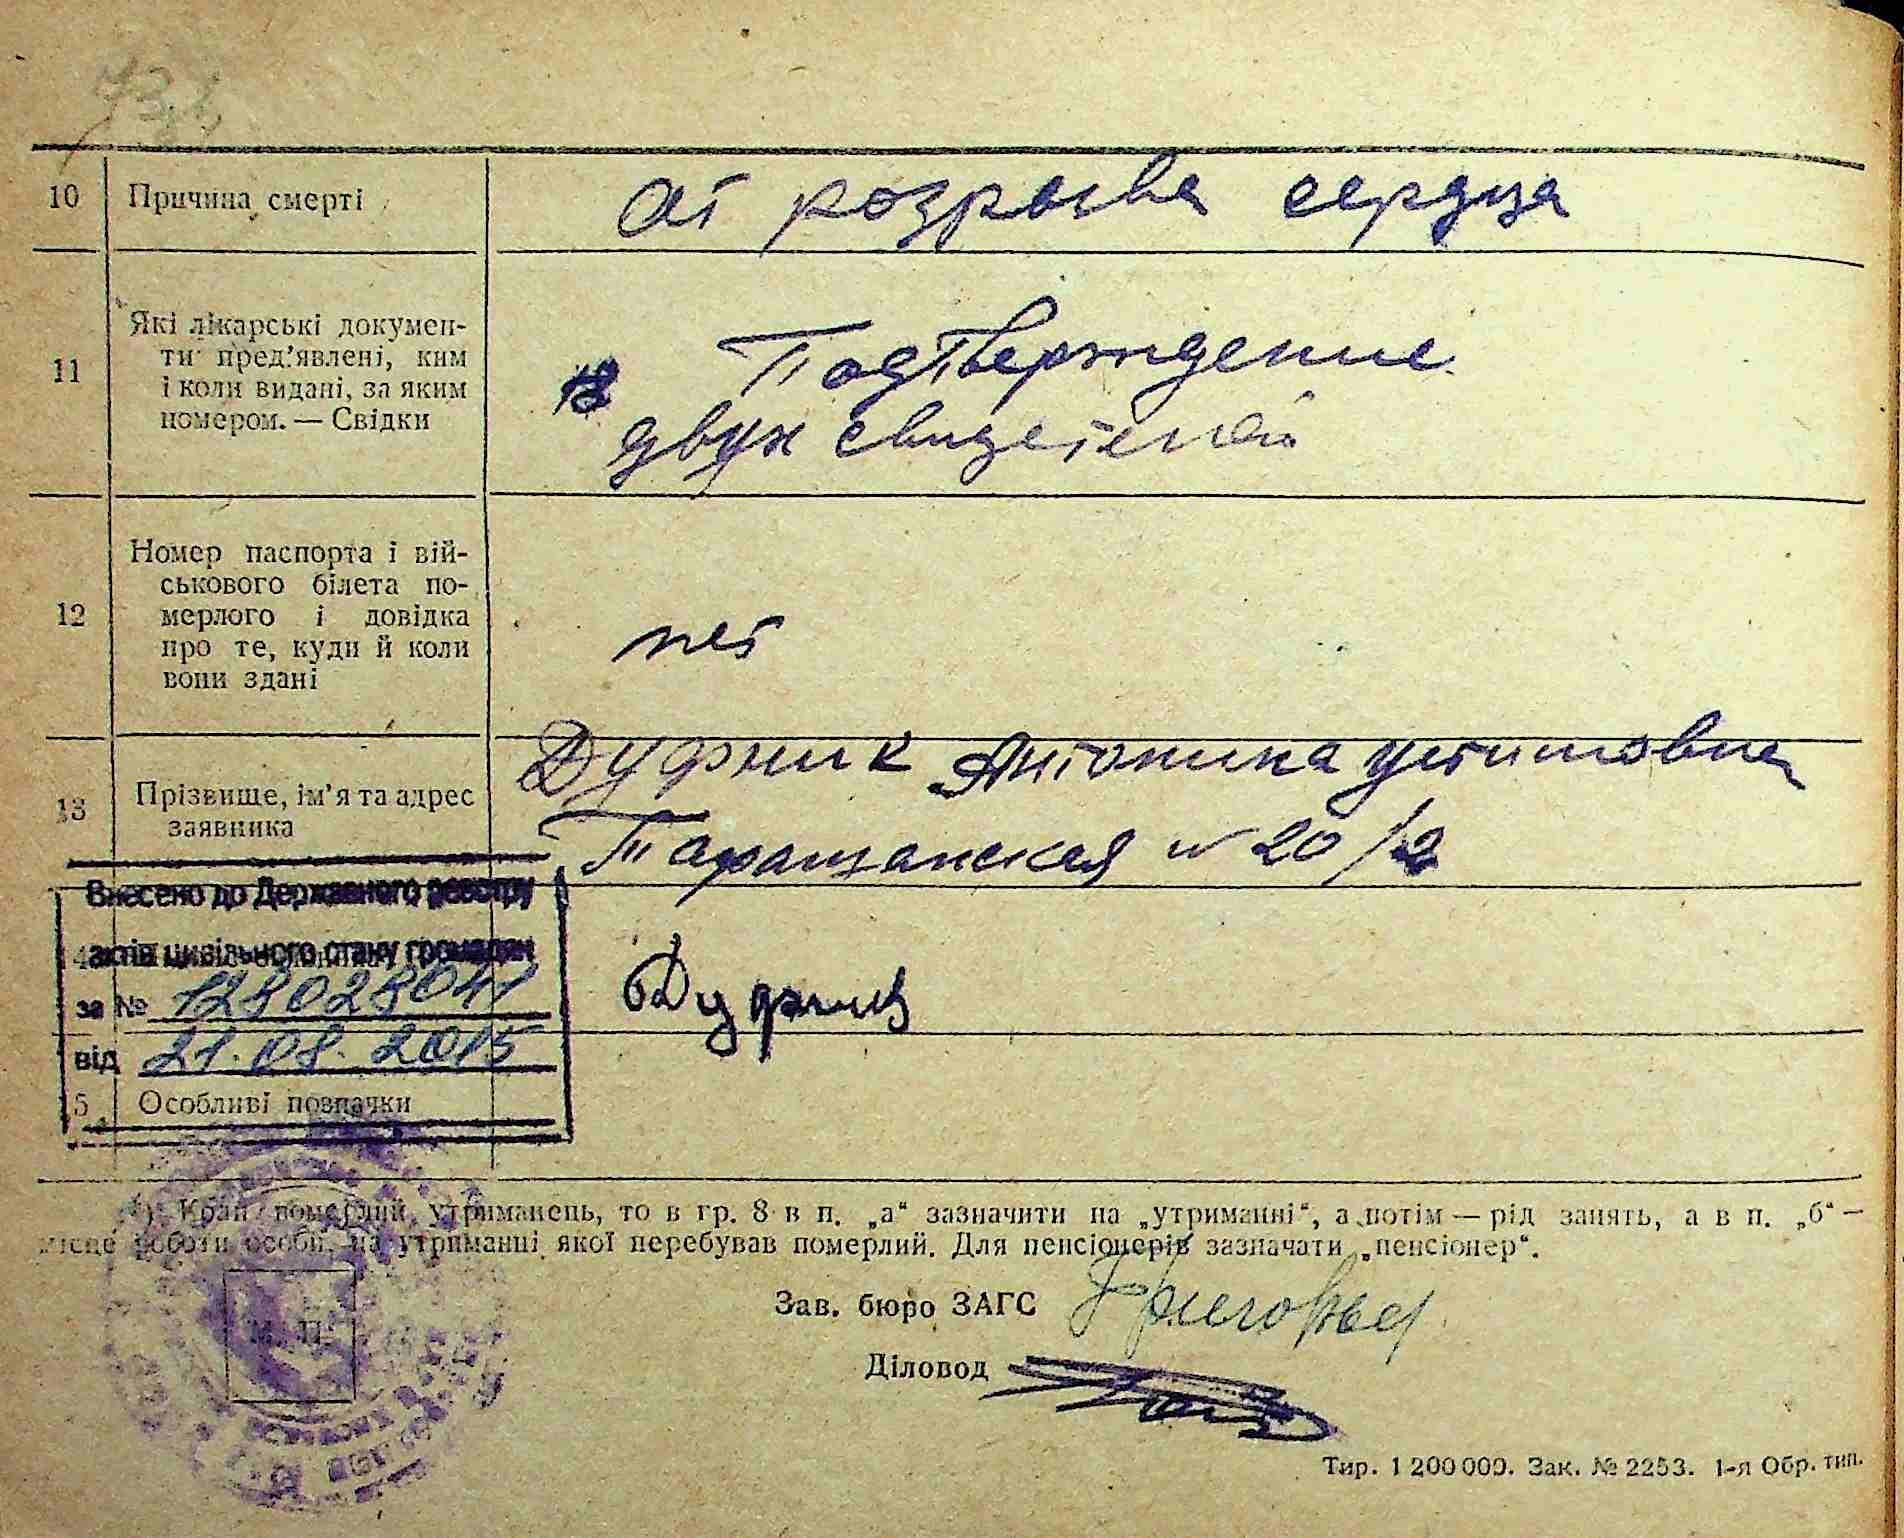 10 Причина смерті
от розрыва сердца
11 Які лікарські докумен-
ти пред'явлені, ким
і коли видані, за яким
номером. — Свідки
Подтверждение
двух свидетелей
12 Номер паспорта і вій-
ськового білета по-
мерлого і довідка
про те, куди й коли
вони здані
нет
13 Прізвище, ім'я та адрес
заявника
Дуфник Антонина Устимовна
Таращанская № 20/2
Внесено до Державного реєстру
актів цивільного стану громадян
за № 128028041
від 21.08.2015
Дуфник
5 Особливі позначки
*) Коли померлий утриманець, то в гр. 8 в п. „а“ зазначити на „утриманні“, а потім — рід занять, а в п. „б“ —
місце роботи особи, на утриманні якої перебував померлий. Для пенсіонерів зазначати „пенсіонер“.
Зав. бюро ЗАГС
Діловод
М. П.
Тир. 1 200 000. Зак. № 2253. 1-я Обр. тип.